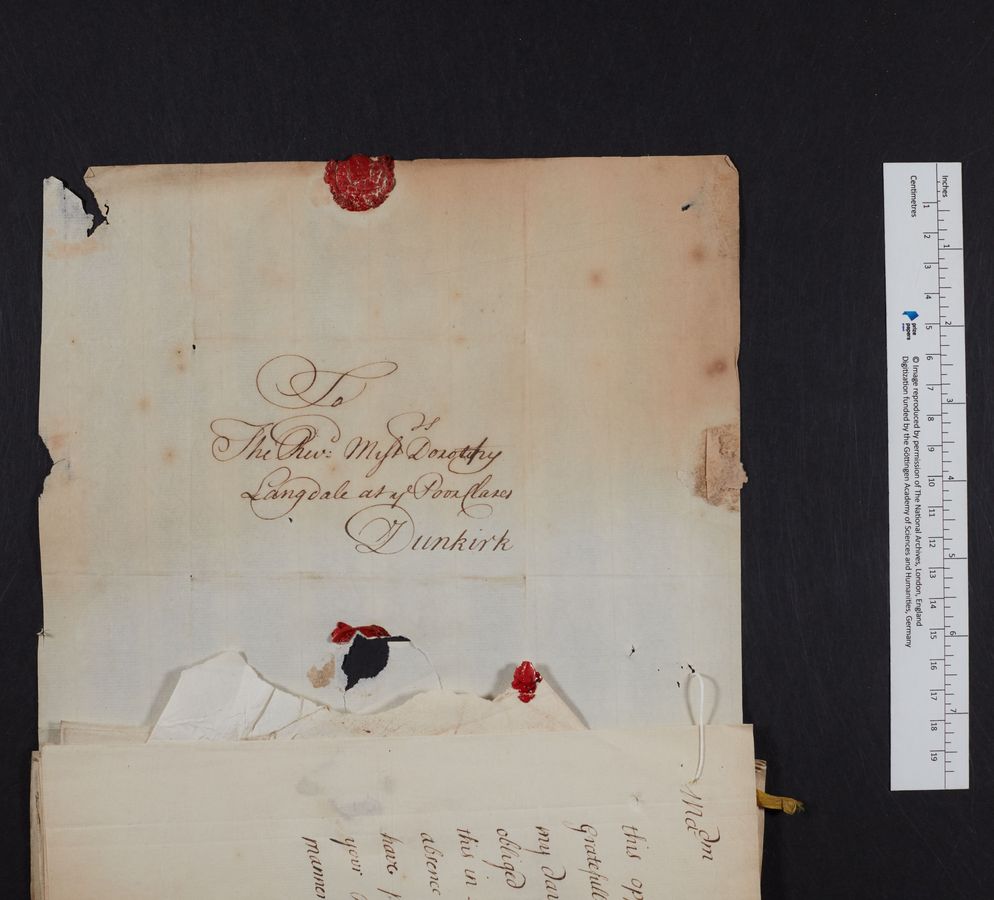 To
The Revd: Mrs Dorothy
Langdale at ye Poor Clares
Dunkirk
Madm
this op
Gratefull
my dau
obliged
this in
absence
have p
your
manner
Inches
Centimetres
1 2 3 4 5 6 7
1 2 3 4 5 6 7 8 9 10 11 12 13 14 15 16 17 18 19
prize papers
© Image reproduced by permission of The National Archives, London, England
Digitization funded by the Göttingen Academy of Sciences and Humanities, Germany